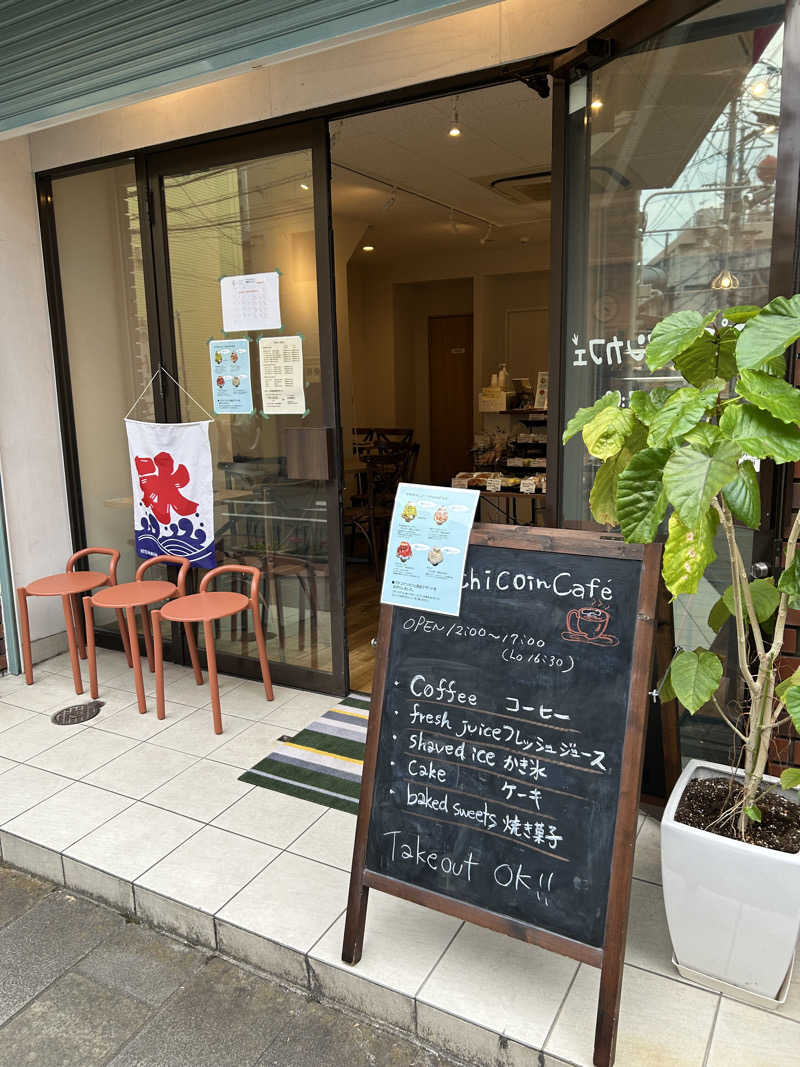 カフェ
氷
chicoin Café
OPEN 12:00~17:00
(Lo 16:30)
・Coffee コーヒー
・fresh juice フレッシュジュース
・shaved ice かき氷
・Cake ケーキ
・baked sweets 焼き菓子
Takeout OK!!